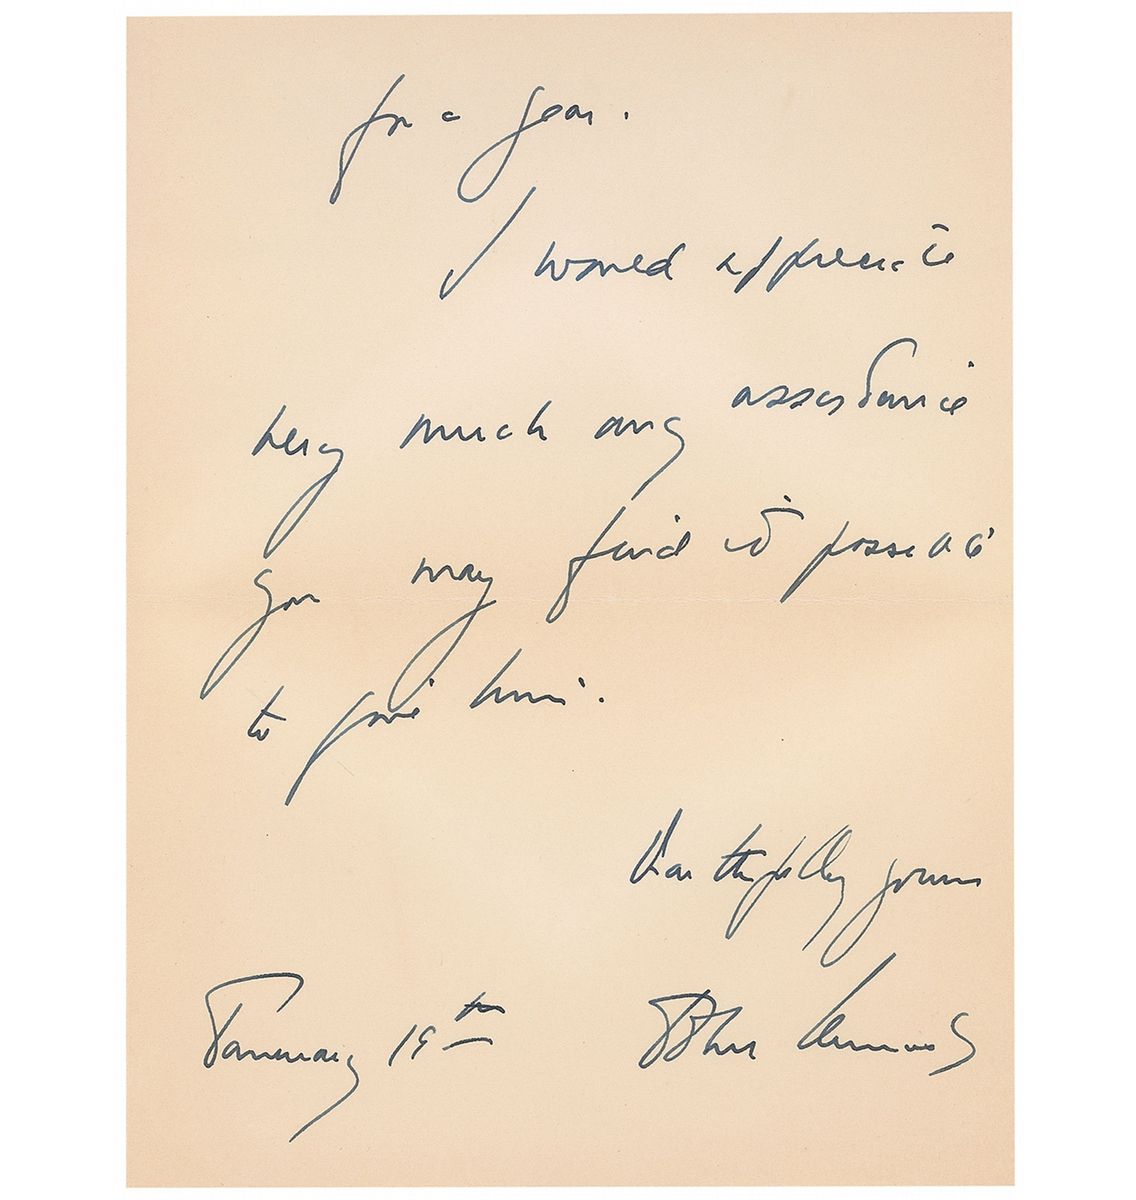 for a year.
I would appreciate
very much any assistance
you may find it possible
to give him.
yours
January 19th